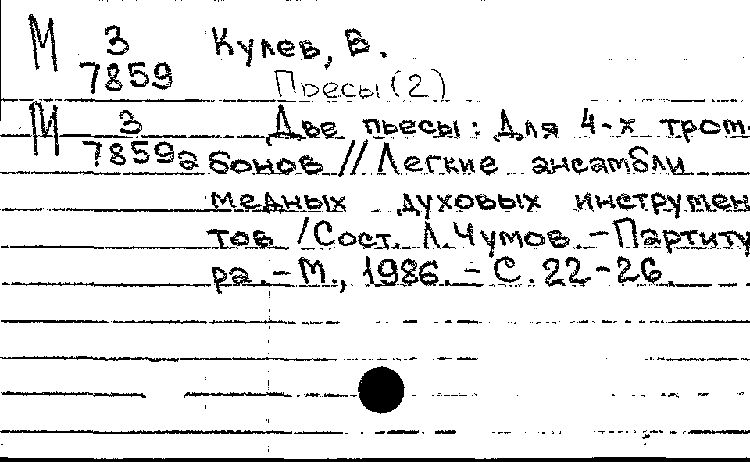 М 3 Кулев, В.
7859 Пьесы (2)
М 3 Две пьесы: Для 4-х тром-
7859а бонов // Легкие ансамбли
медных духовых инструмен
тов / Сост. Л. Чумов. - Партиту
ра. - М., 1986. - С. 22-26.